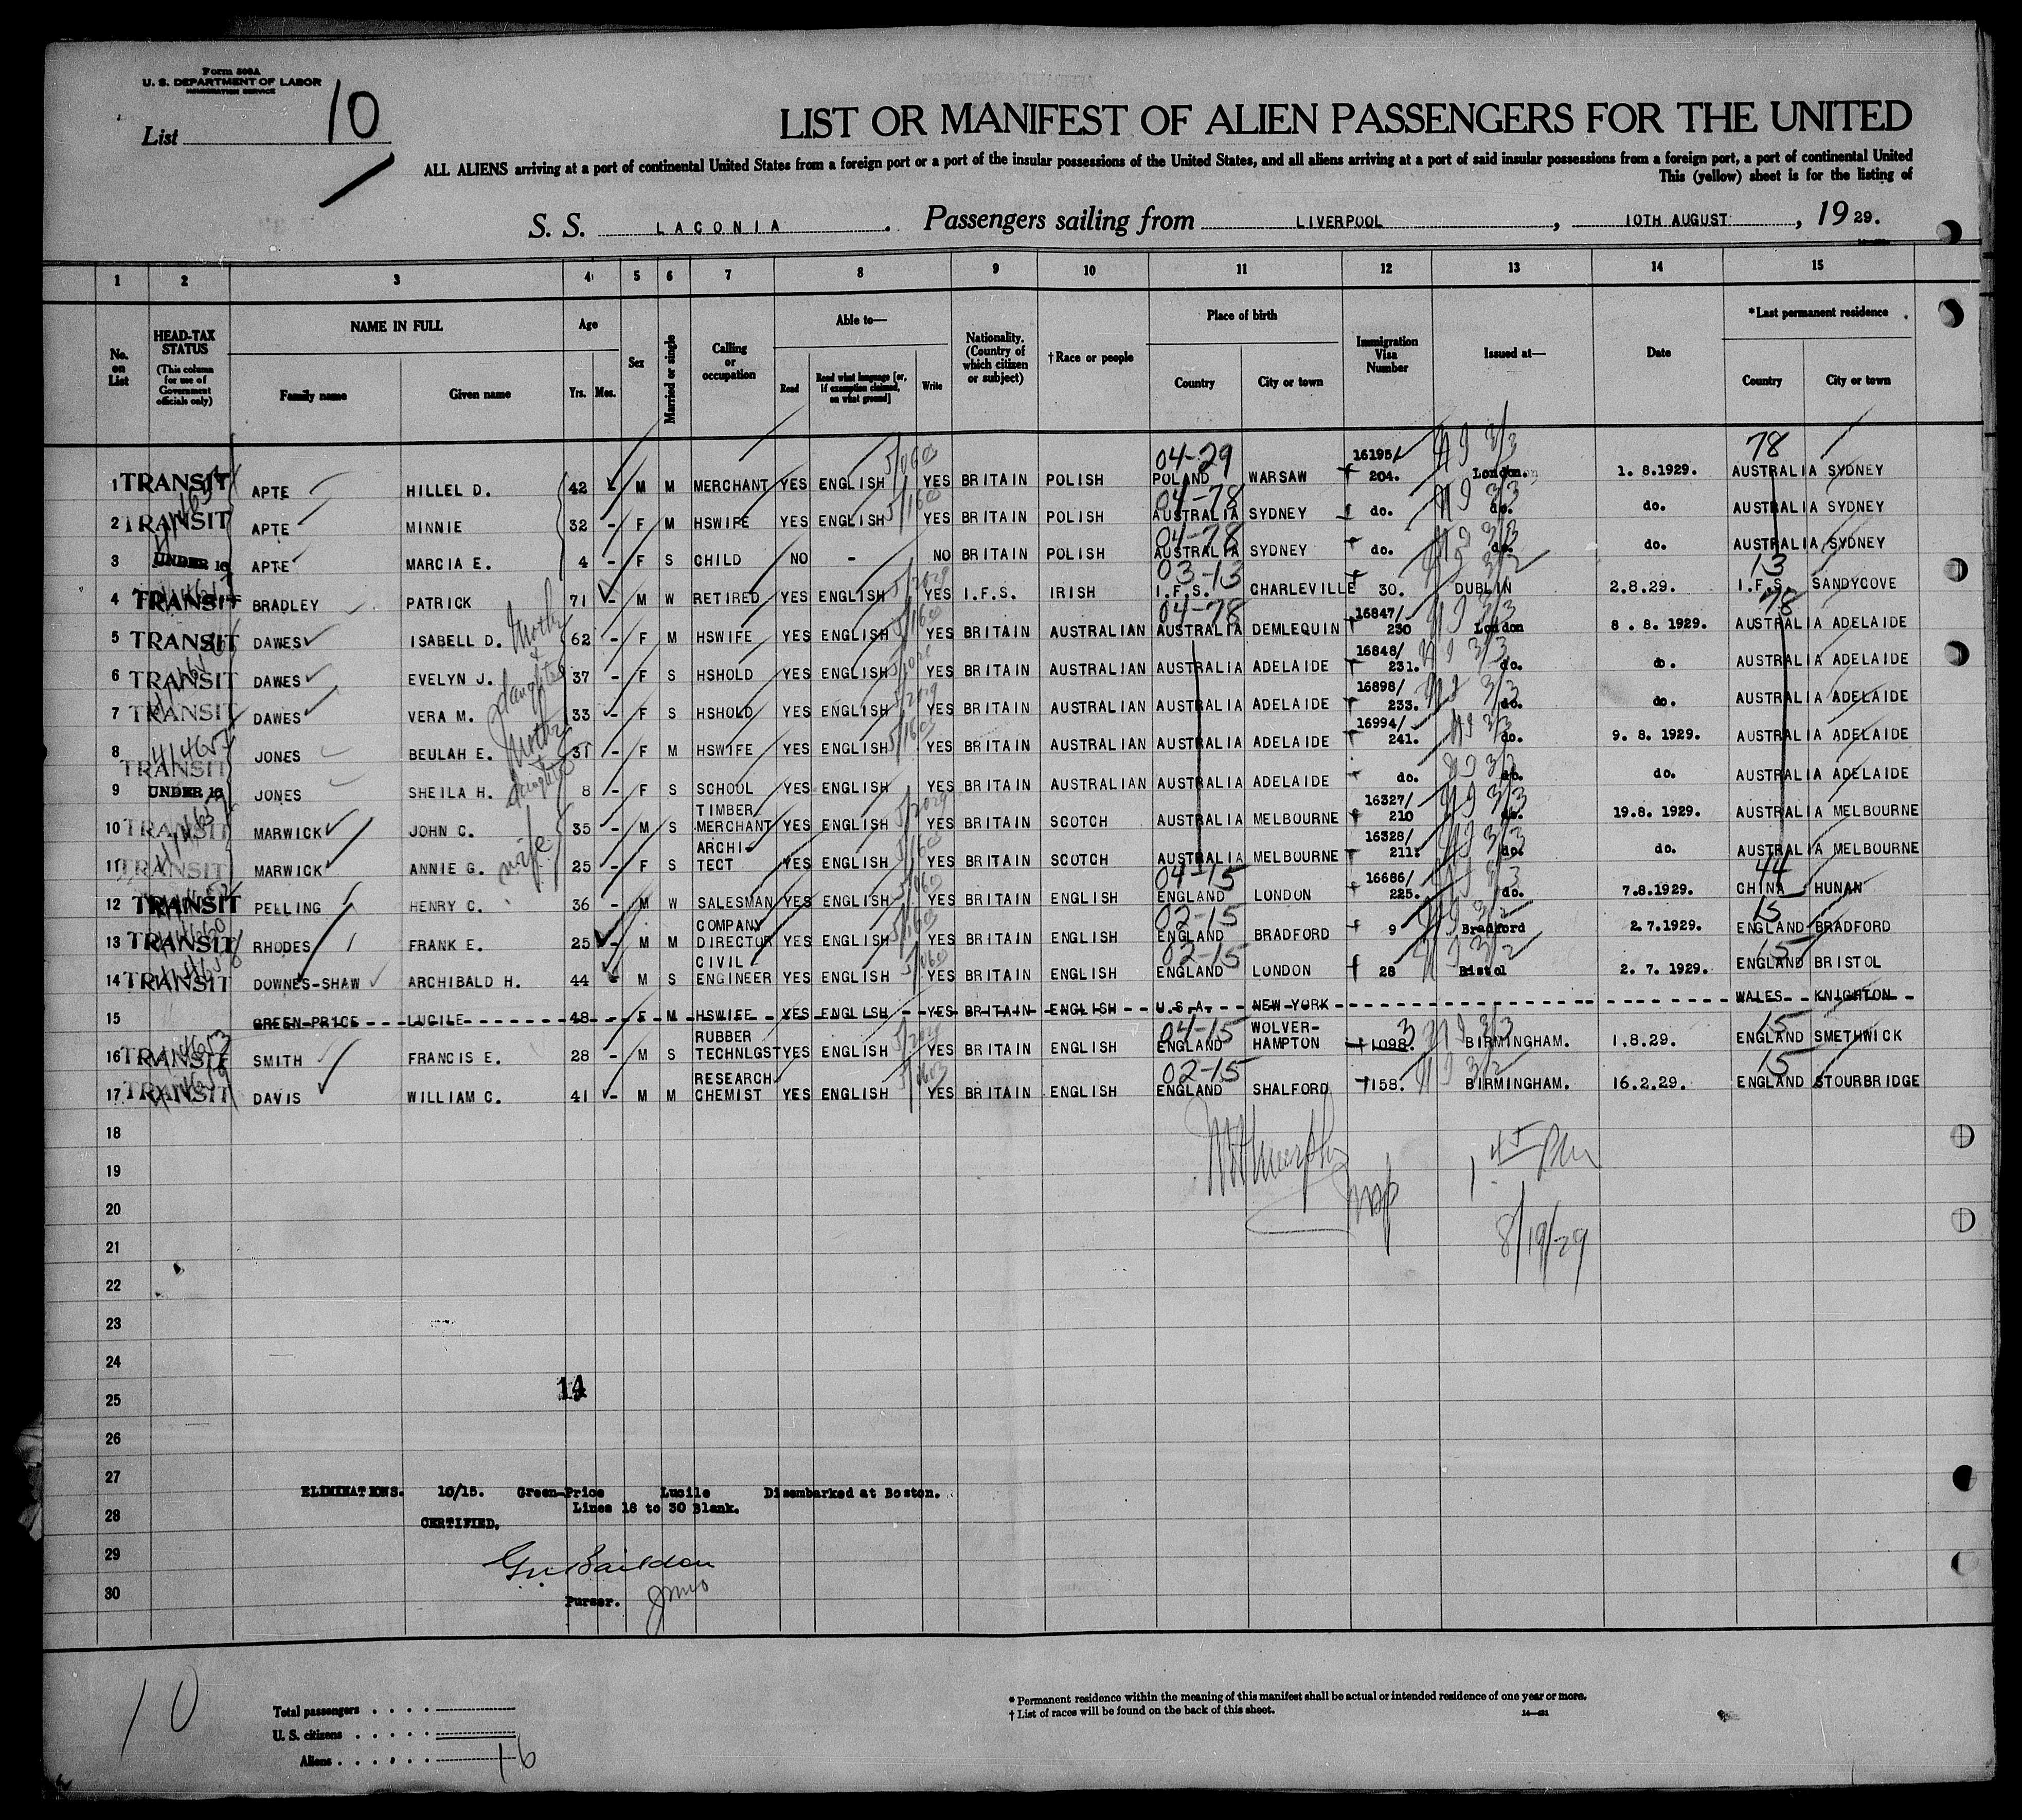 Form 500A
U. S. DEPARTMENT OF LABOR
IMMIGRATION SERVICE
List 10
LIST OR MANIFEST OF ALIEN PASSENGERS FOR THE UNITED
ALL ALIENS arriving at a port of continental United States from a foreign port or a port of the insular possessions of the United States, and all aliens arriving at a port of said insular possessions from a foreign port, a port of continental United
This (yellow) sheet is for the listing of
S. S. LACONIA. Passengers sailing from LIVERPOOL, 10TH AUGUST, 19 29.
1 2 3 4 5 6 7 8 9 10 11 12 13 14 15
No. on List
HEAD-TAX STATUS (This column for use of Government officials only)
NAME IN FULL
Family name
Given name
Age
Yrs. Mos.
Sex
Married or single
Calling or occupation
Able to—
Read
Read what language [or, if exemption claimed, on what ground]
Write
Nationality. (Country of which citizen or subject)
†Race or people
Place of birth
Country
City or town
Immigration Visa Number
Issued at—
Date
*Last permanent residence
Country
City or town
04-29 16195/ 78
1 TRANSIT APTE HILLEL D. 42 - M M MERCHANT YES ENGLISH YES BRITAIN POLISH POLAND WARSAW 204. London. 1. 8.1929. AUSTRALIA SYDNEY
04-78
2 TRANSIT APTE MINNIE 32 - F M HSWIFE YES ENGLISH YES BRITAIN POLISH AUSTRALIA SYDNEY do. do. do. AUSTRALIA SYDNEY
04-78
3 UNDER 16 APTE MARCIA E. 4 - F S CHILD NO - NO BRITAIN POLISH AUSTRALIA SYDNEY do. do. do. AUSTRALIA SYDNEY
03-13 13
4 TRANSIT BRADLEY PATRICK 71 - M W RETIRED YES ENGLISH YES I.F.S. IRISH I.F.S. CHARLEVILLE 30. DUBLIN 2.8.29. I.F.S. SANDYCOVE
04-78 16847/ 78
5 TRANSIT DAWES ISABELL D. Mother 62 - F M HSWIFE YES ENGLISH YES BRITAIN AUSTRALIAN AUSTRALIA DEMLEQUIN 230 London 8. 8. 1929. AUSTRALIA ADELAIDE
16848/
6 TRANSIT DAWES EVELYN J. & daughters 37 - F S HSHOLD YES ENGLISH YES BRITAIN AUSTRALIAN AUSTRALIA ADELAIDE 231. do. do. AUSTRALIA ADELAIDE
16898/
7 TRANSIT DAWES VERA M. 33 - F S HSHOLD YES ENGLISH YES BRITAIN AUSTRALIAN AUSTRALIA ADELAIDE 233. do. do. AUSTRALIA ADELAIDE
16994/
8 TRANSIT JONES BEULAH E. Mother 31 - F M HSWIFE YES ENGLISH YES BRITAIN AUSTRALIAN AUSTRALIA ADELAIDE 241. do. 9. 8. 1929. AUSTRALIA ADELAIDE
9 UNDER 16 JONES SHEILA H. daughter 8 - F S SCHOOL YES ENGLISH YES BRITAIN AUSTRALIAN AUSTRALIA ADELAIDE do. do. do. AUSTRALIA ADELAIDE
TIMBER 16327/
10 TRANSIT MARWICK JOHN C. 35 - M S MERCHANT YES ENGLISH YES BRITAIN SCOTCH AUSTRALIA MELBOURNE 210 do. 19.8. 1929. AUSTRALIA MELBOURNE
ARCHI- 16328/
11 TRANSIT MARWICK ANNIE G. wife 25 - F S TECT YES ENGLISH YES BRITAIN SCOTCH AUSTRALIA MELBOURNE 211. do. do. AUSTRALIA MELBOURNE
04-15 16686/ 44
12 TRANSIT PELLING HENRY C. 36 - M W SALESMAN YES ENGLISH YES BRITAIN ENGLISH ENGLAND LONDON 225. do. 7.8.1929. CHINA HUNAN
COMPANY 02-15 15
13 TRANSIT RHODES FRANK E. 25 - M M DIRECTOR YES ENGLISH YES BRITAIN ENGLISH ENGLAND BRADFORD 9 Bradford 2.7.1929. ENGLAND BRADFORD
CIVIL 02-15 15
14 TRANSIT DOWNES-SHAW ARCHIBALD H. 44 - M S ENGINEER YES ENGLISH YES BRITAIN ENGLISH ENGLAND LONDON 28 Bistol 2. 7. 1929. ENGLAND BRISTOL
15 GREEN-PRICE LUCILE 48 - F M HSWIFE YES ENGLISH YES BRITAIN ENGLISH U.S.A. NEW YORK WALES KNIGHTON
RUBBER 04-15 WOLVER- 3 15
16 TRANSIT SMITH FRANCIS E. 28 - M S TECHNLGST YES ENGLISH YES BRITAIN ENGLISH ENGLAND HAMPTON 1098. BIRMINGHAM. 1.8.29. ENGLAND SMETHWICK
RESEARCH 02-15 15
17 TRANSIT DAVIS WILLIAM C. 41 - M M CHEMIST YES ENGLISH YES BRITAIN ENGLISH ENGLAND SHALFORD 1158. BIRMINGHAM. 16.2.29. ENGLAND STOURBRIDGE
18
19
20
21
8/19/29
22
23
24
25 14
26
27
ELIMINATIONS. 10/15. Green-Price Lucile Disembarked at Boston.
Lines 18 to 30 Blank.
28
CERTIFIED,
29
30
Purser.
10
Total passengers
U. S. citizens
Aliens 16
* Permanent residence within the meaning of this manifest shall be actual or intended residence of one year or more.
† List of races will be found on the back of this sheet.